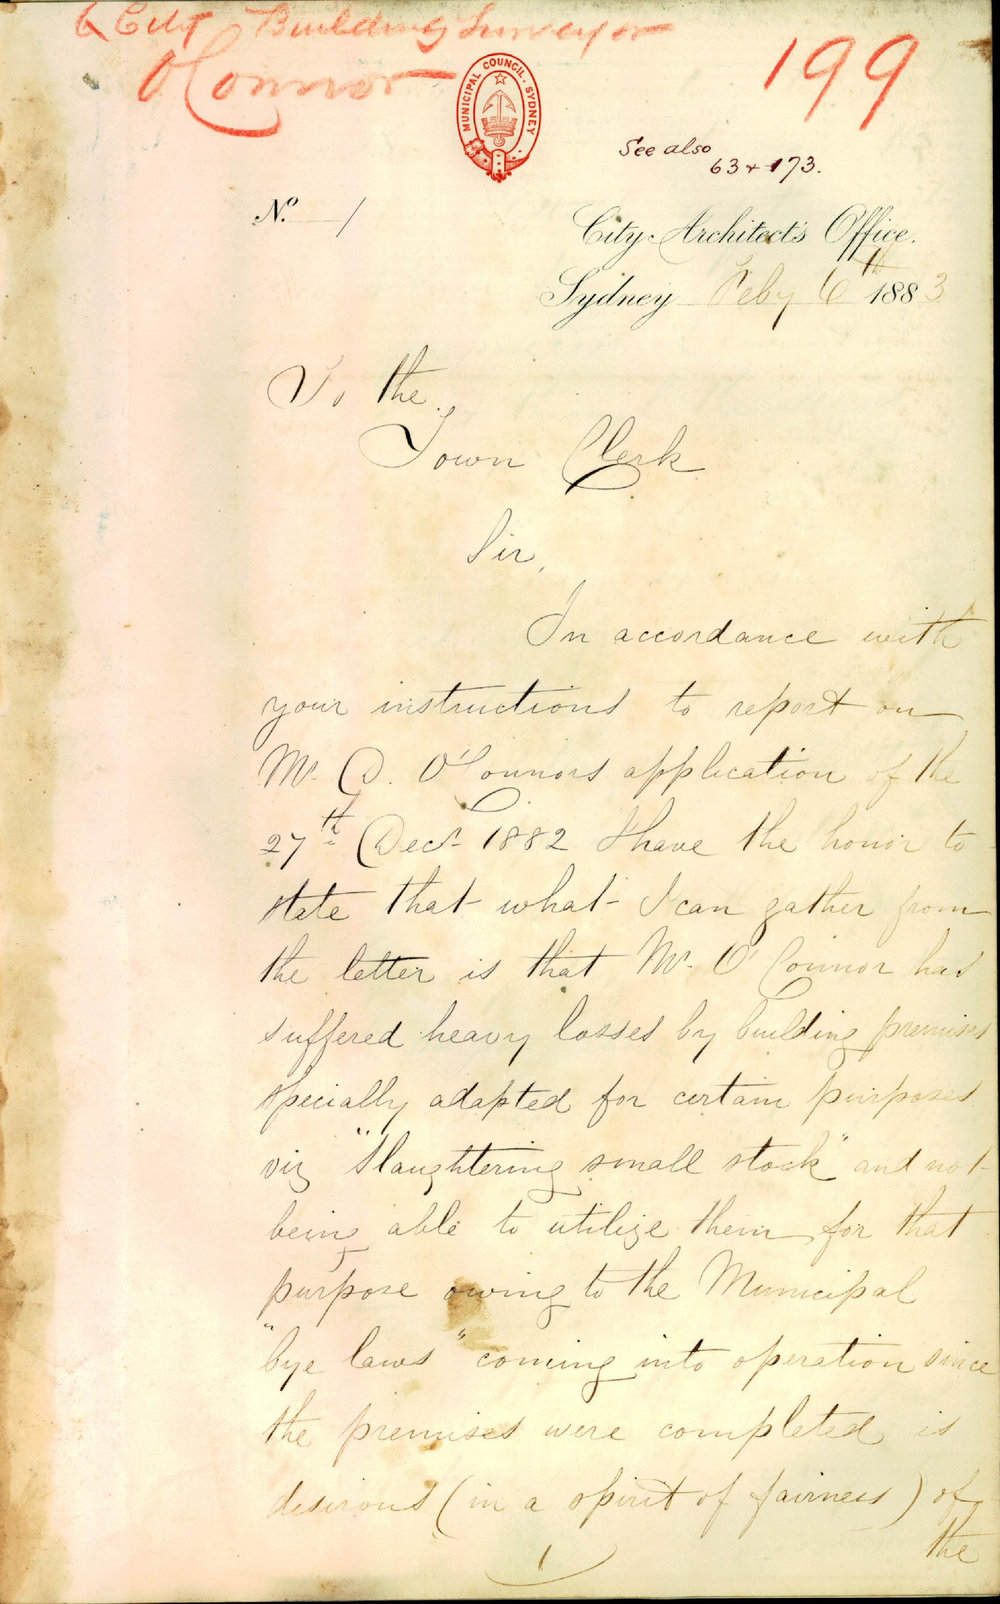 6 City Building Surveyor
O'Connor
199
MUNICIPAL COUNCIL. SYDNEY
See also
63 + 173.
No. 1
City Architect's Office.
Sydney Feby 6th 1883
To the
Town Clerk
Sir,
In accordance with
your instructions to report on
Mr. D. O'Connors application of the
27th Decr 1882 I have the honor to
state that what I can gather from
the letter is that Mr. O'Connor has
suffered heavy losses by building premises
specially adapted for certain purposes
viz "slaughtering small stock" and not
being able to utilize them for that
purpose owing to the Municipal
"bye laws" coming into operation since
the premises were completed is
desirous (in a spirit of fairness) of
the
1